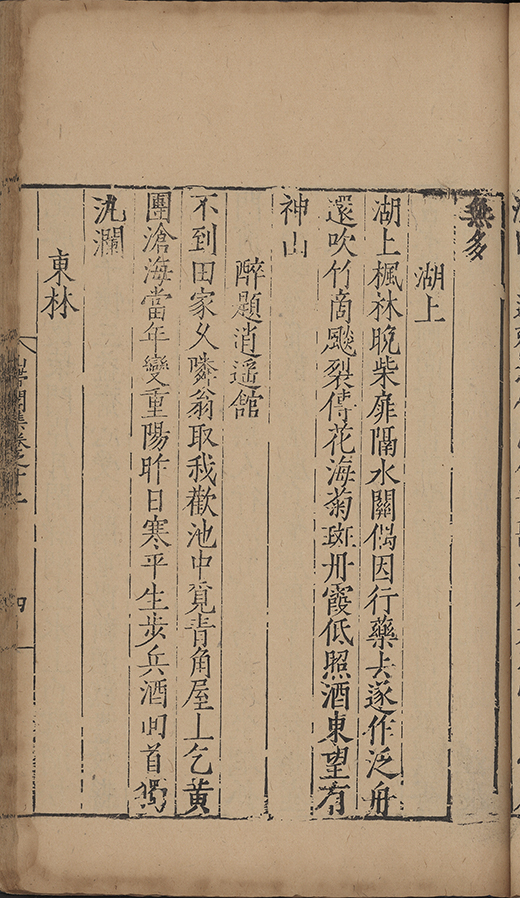 無多
湖上
湖上楓林晚柴扉隔水關偶因行藥去遂作泛舟
還吹竹商飈裂傳花海菊斑丹霞低照酒東望有
神山
醉題逍遥舘
不到田家乆隣翁取我歡池中覓青角屋上乞黄
團滄海當年變重陽昨日寒平生步兵酒囘首獨
汍瀾
東林